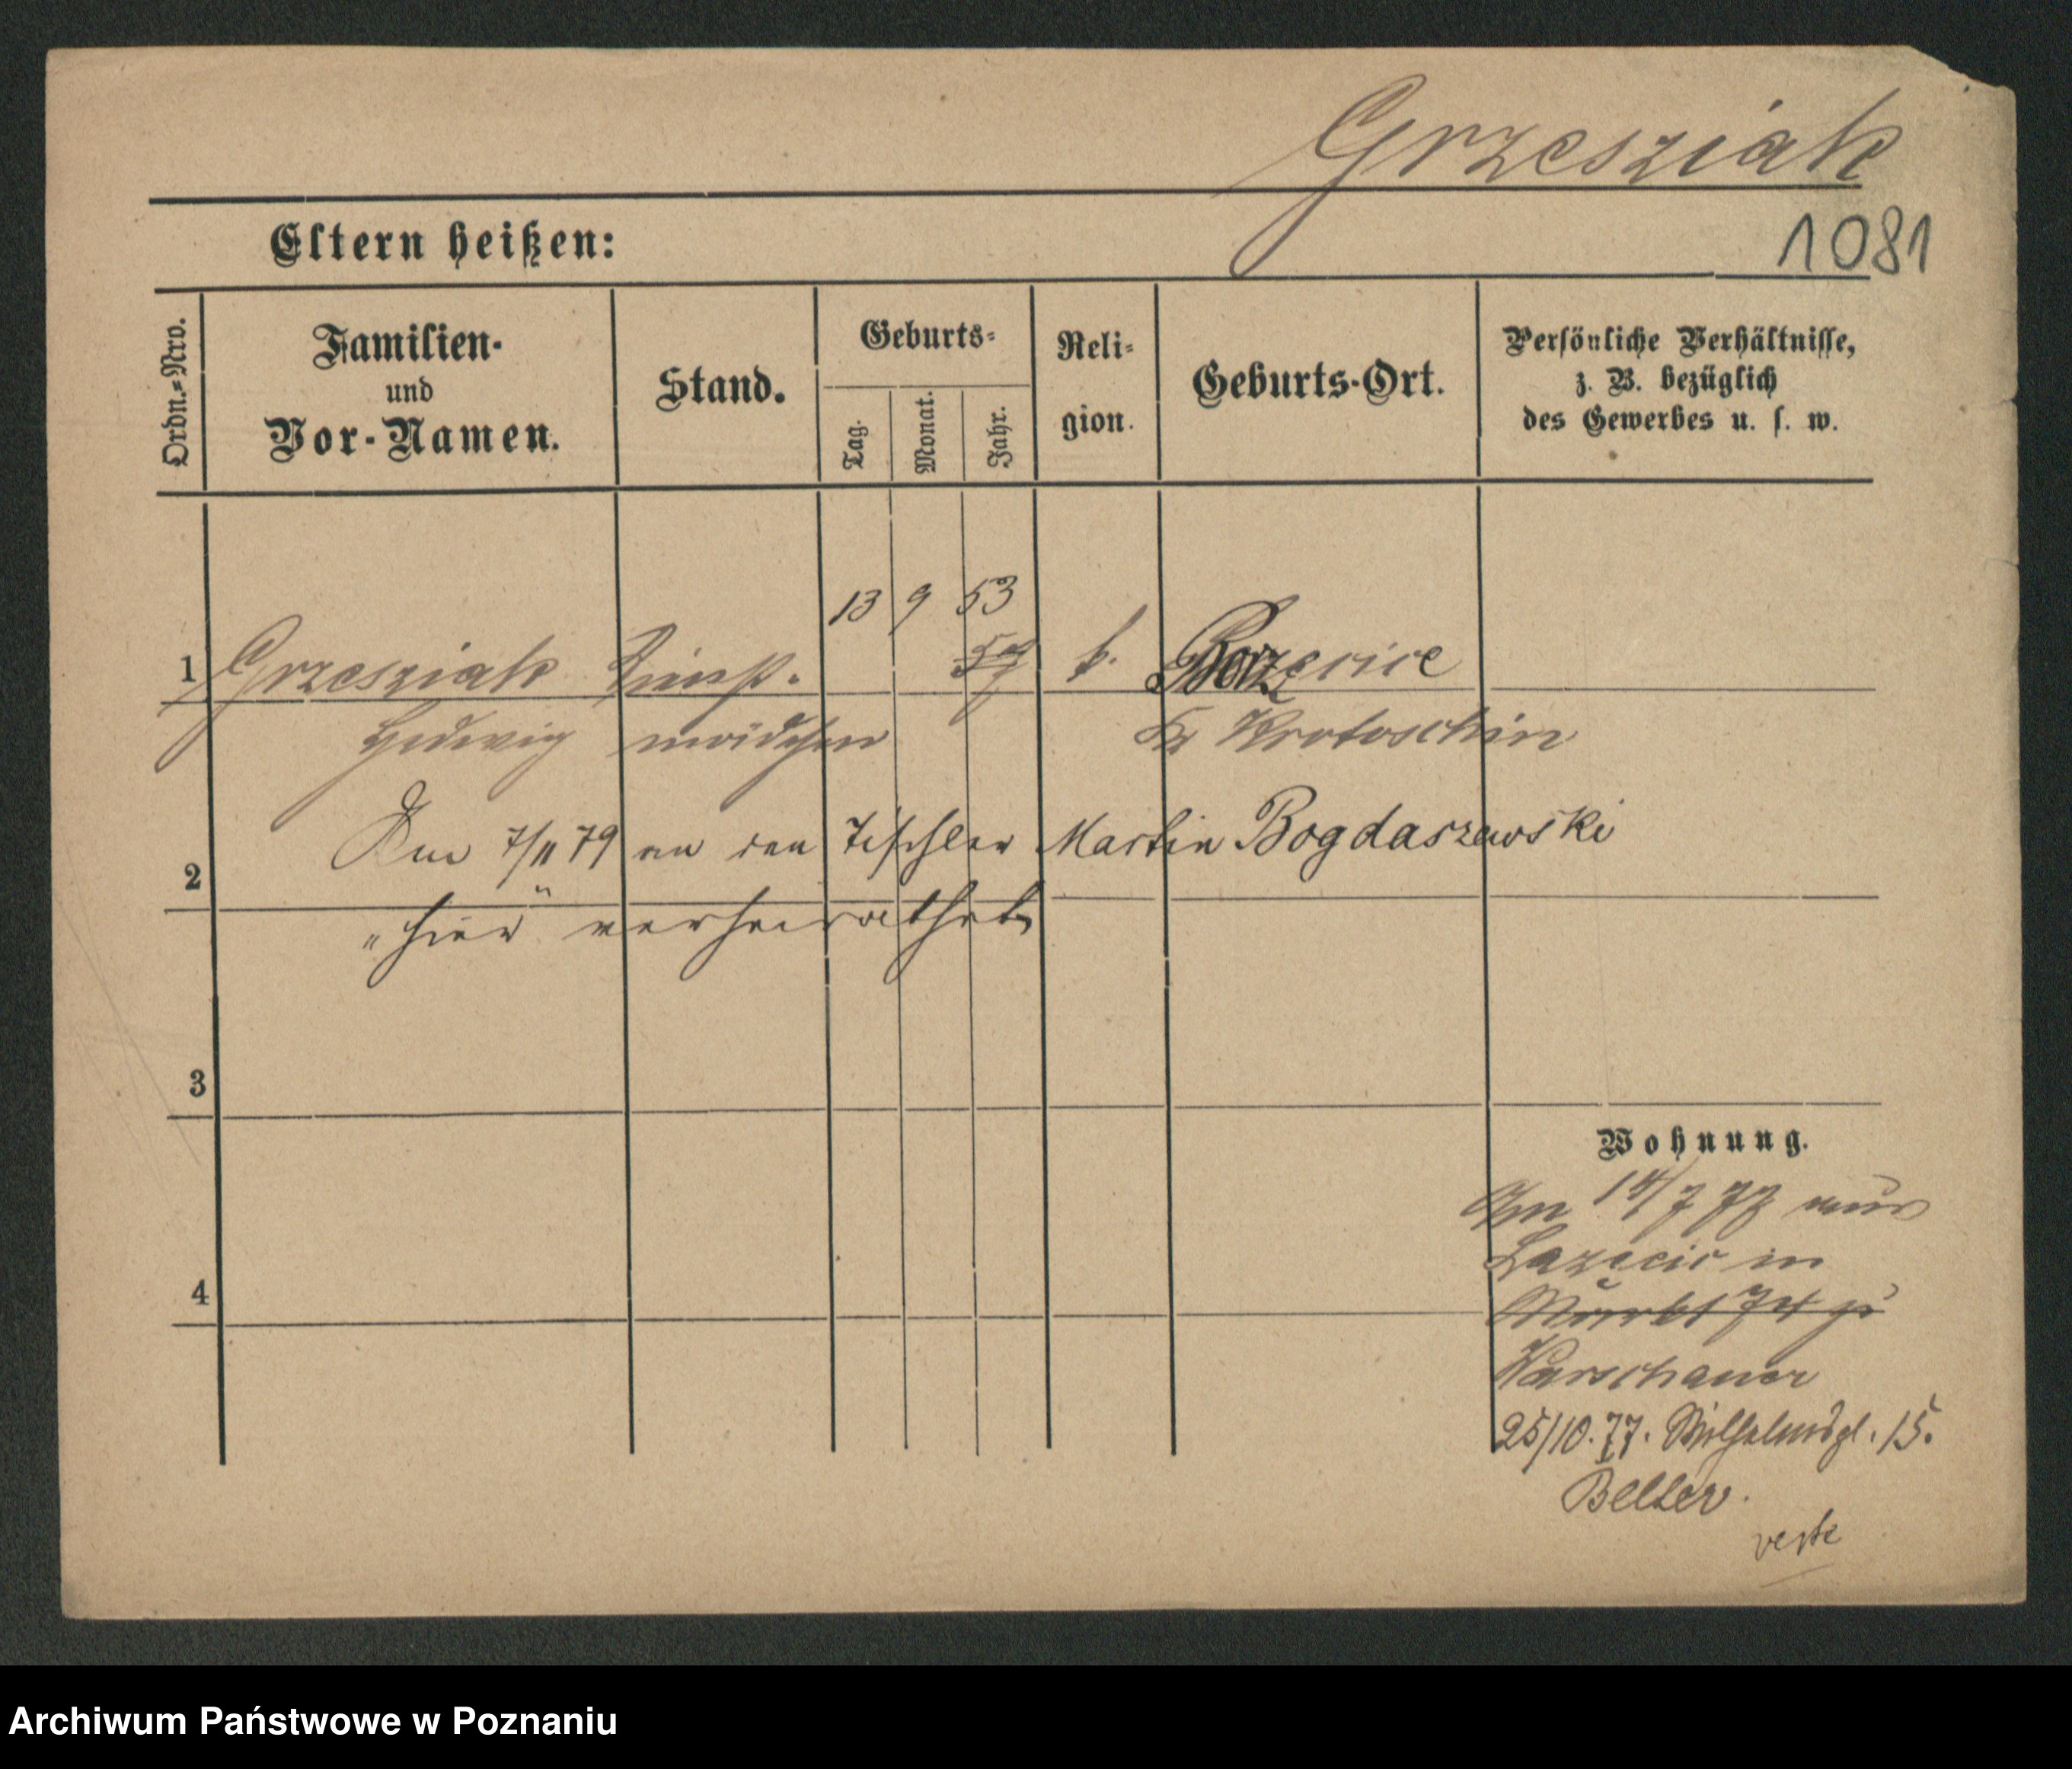 Grzesziak
1081
Eltern heißen:
Ordn.-Nro.
Familien-
und
Vor-Namen.
Stand.
Geburts-
Tag.
Monat.
Jahr.
Reli-
gion.
Geburts-Ort.
Persönliche Verhältnisse,
z. B. bezüglich
des Gewerbes u. s. w.
13 9 53
1 Grzesziak Dienst. 57 k.
Hedwig mädchen Kr Krotoschin
2 Am 7/11 79 an den Tischler Martin Bogdaszewski
"hier" verheirathet
3
Wohnung.
Am 14/7 77 aus
in
4
Markt 74 zu
Warschauer
25/10. 77. Wilhelmspl. 15.
Beller.
Archiwum Państwowe w Poznaniu